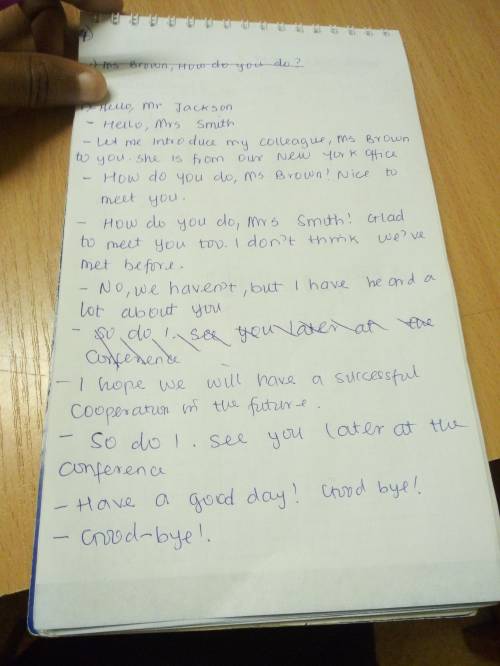 4)
1) Ms Brown, How do you do?
1) Hello, Mr Jackson
- Hello, Mrs Smith
- Let me introduce my colleague, Ms Brown
to you. She is from our New York office
- How do you do, Ms Brown! Nice to
meet you.
- How do you do, Mrs Smith! Glad
to meet you too. I don't think we've
met before.
- No, we haven't, but I have heard a
lot about you
- So do I. see you later at the
conference
- I hope we will have a successful
cooperation in the future.
- So do I. see you later at the
conference
- Have a good day! Good bye!
- Good-bye!.